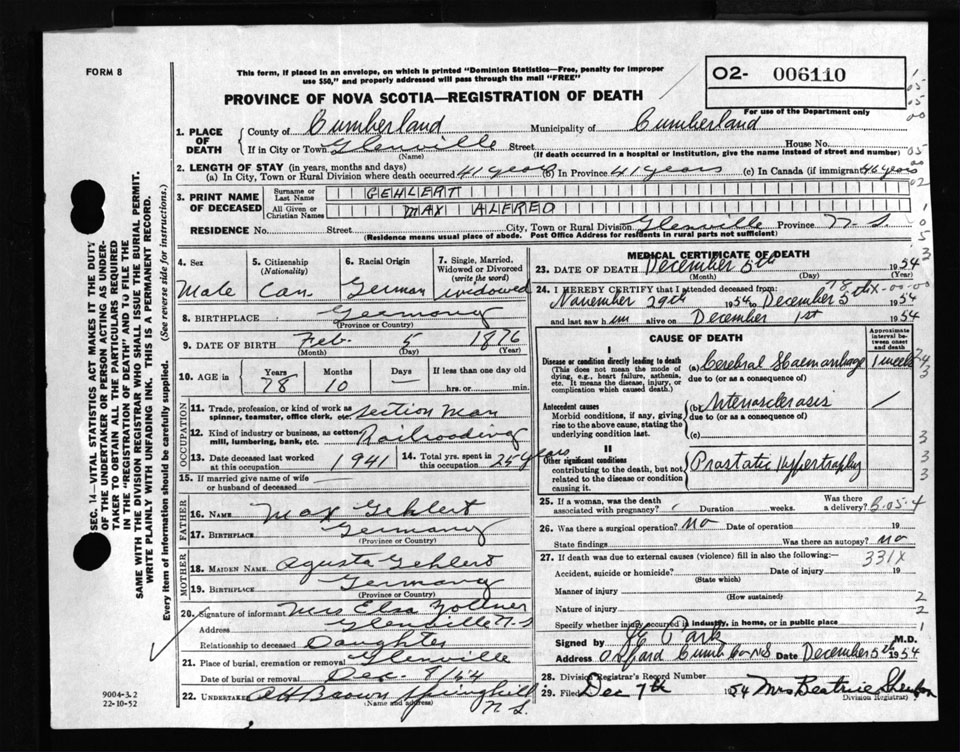 FORM 8
This form, if placed in an envelope, on which is printed "Dominion Statistics—Free, penalty for improper
use $50," and properly addressed will pass through the mail "FREE"
O2- 006110
For use of the Department only
PROVINCE OF NOVA SCOTIA—REGISTRATION OF DEATH
1. PLACE OF DEATH County of Cumberland Municipality of Cumberland
If in City or Town Glenville Street House No.
(Name) (If death occurred in a hospital or institution, give the name instead of street and number)
2. LENGTH OF STAY (in years, months and days)
(a) In City, Town or Rural Division where death occurred 41 years (b) In Province 41 years (c) In Canada (if immigrant) 46 years
3. PRINT NAME OF DECEASED Surname or Last Name GEHLERT
All Given or Christian Names MAX ALFRED
RESIDENCE No. Street City, Town or Rural Division Glenville Province N.S.
(Residence means usual place of abode. Post Office Address for residents in rural parts not sufficient)
4. Sex Male
5. Citizenship (Nationality) Can.
6. Racial Origin German
7. Single, Married, Widowed or Divorced (write the word) widowed
8. BIRTHPLACE Germany
(Province or Country)
9. DATE OF BIRTH Feb. 5 1876
(Month) (Day) (Year)
10. AGE in Years 78 Months 10 Days — If less than one day old hrs. or min.
OCCUPATION
11. Trade, profession, or kind of work as spinner, teamster, office clerk, etc. Section Man
12. Kind of industry or business, as cotton mill, lumbering, bank, etc. Railroading
13. Date deceased last worked at this occupation 1941
14. Total yrs. spent in this occupation 25 years
15. If married give name of wife or husband of deceased —
FATHER
16. NAME Max Gehlert
17. BIRTHPLACE Germany
(Province or Country)
MOTHER
18. MAIDEN NAME Agusta Gehlert
19. BIRTHPLACE Germany
(Province or Country)
20. Signature of informant Mrs Elsa Zollner
Address Glenville N.S
Relationship to deceased Daughter
21. Place of burial, cremation or removal Glenville
Date of burial or removal Dec. 8/54
22. UNDERTAKER Brown Springhill
(Name and address) N S.
MEDICAL CERTIFICATE OF DEATH
23. DATE OF DEATH December 5th 1954
(Month) (Day) (Year)
24. I HEREBY CERTIFY that I attended deceased from:
November 29th 1954 to December 5th 1954
and last saw him alive on December 1st 1954
CAUSE OF DEATH
Approximate interval between onset and death
I
Disease or condition directly leading to death
(This does not mean the mode of dying, e.g., heart failure, asthenia, etc. It means the disease, injury, or complication which caused death.)
(a) Cerebral Haemorrhage 1 week
due to (or as a consequence of)
Antecedent causes
Morbid conditions, if any, giving rise to the above cause, stating the underlying condition last.
(b) Arterosclerosis
due to (or as a consequence of)
(c)
II
Other significant conditions
contributing to the death, but not related to the disease or condition causing it.
Prostatic Hypertrophy
25. If a woman, was the death associated with pregnancy? Duration weeks. Was there a delivery?
26. Was there a surgical operation? No Date of operation 19
State findings Was there an autopsy? No
27. If death was due to external causes (violence) fill in also the following:— 331X
Accident, suicide or homicide? Date of injury 19
(State which)
Manner of injury
(How sustained)
Nature of injury
Specify whether injury occurred in industry, in home, or in public place
Signed by Park M.D.
Address Oxford Cumb Co NS Date December 5th 1954
28. Division Registrar's Record Number
29. Filed Dec 7th 1954 Mrs Beatrice
Division Registrar
SEC. 14—VITAL STATISTICS ACT MAKES IT THE DUTY
OF THE UNDERTAKER OR PERSON ACTING AS UNDER-
TAKER TO OBTAIN ALL THE PARTICULARS REQUIRED
IN THE "REGISTRATION OF DEATH" AND TO FILE THE
SAME WITH THE DIVISION REGISTRAR WHO SHALL ISSUE THE BURIAL PERMIT.
WRITE PLAINLY WITH UNFADING INK. THIS IS A PERMANENT RECORD.
Every item of information should be carefully supplied. (See reverse side for instructions.)
9004-3.2
22-10-52